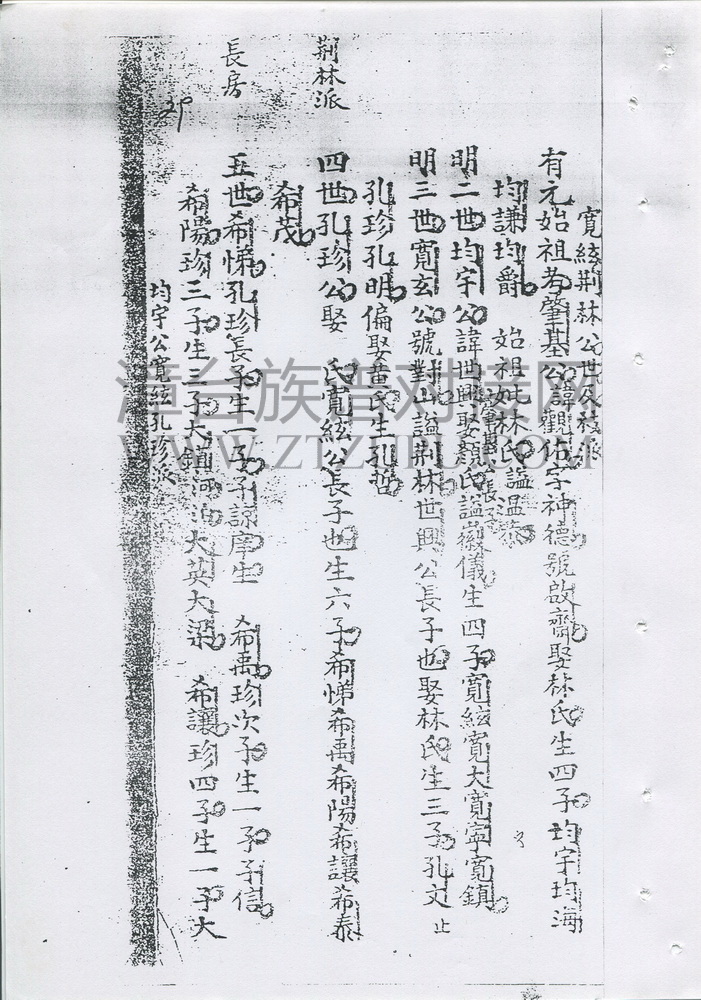 寬絃荆林公世及枝派
有元始祖考肇基公諱觀佑字神德號啟齋娶林氏生四子均宇均海
均謙均爵 始祖妣林氏謚温恭
明二世均宇公諱世興肇基長子娶顏氏謚徽儀生四子寬絃寬大寬寧寬鎮
明三世寬玄公號對山謚荆林世興公長子也娶林氏生三子孔文
止
孔珍孔明偏娶黄氏生孔哲
荆林派
四世孔珍公娶 氏寬絃公長子也生六子希悌希禹希陽希讓希泰
希茂
長房
五世希悌孔珍長子生一子子諒庠生 希禹珍次子生一子子信
希陽珍三子生三子大鎮大英大梁 希讓珍四子生一子大
均宇公寬絃孔珍派
漳台族谱对接网
WWW.ZTZUPU.COM